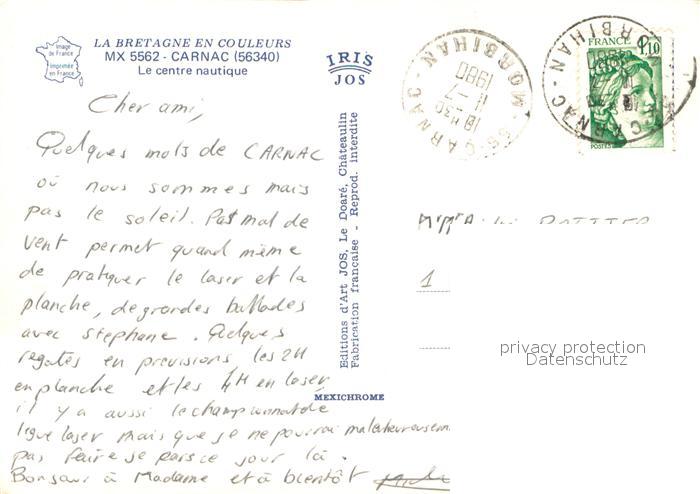 Image
de France
Imprimée
en France
LA BRETAGNE EN COULEURS
MX 5562 - CARNAC (56340)
Le centre nautique
IRIS
JOS
Editions d'Art JOS, Le Doaré, Châteaulin
Fabrication française - Reprod. interdite
MEXICHROME
56-CARNAC-MORBIHAN
18H30
11-7
1980
FRANCE
1,10
POSTES
CARNAC-MORBIHAN
Cher ami,
Quelques mots de CARNAC
où nous sommes mais
pas le soleil. Pas mal de
vent permet quand même
de pratiquer le laser et la
planche, de grandes ballades
avec stephane. Quelques
regates en previsions les 2H
en planche et les 4H en laser
il y a aussi le championnat de
ligue laser mais que je ne pourrai malheureusem
pas faire je pars ce jour là.
Bonsour à Madame et à bientôt
1
privacy protection
Datenschutz